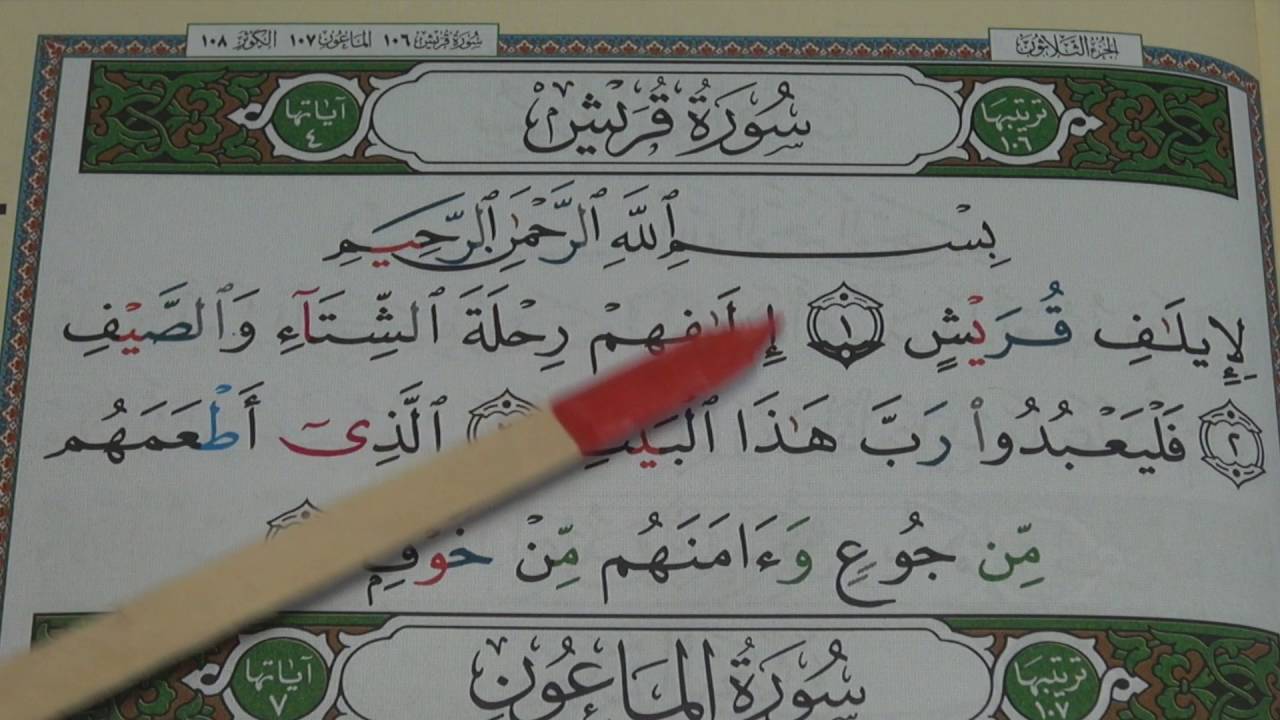 الجزء الثلاثون
سورة قريش ١٠٦ الماعون ١٠٧ الكوثر ١٠٨
ترتيبها ١٠٦
سُورَةُ قُرَيْشٍ
آياتها ٤
بِسْمِ ٱللَّهِ ٱلرَّحْمَٰنِ ٱلرَّحِيمِ
لِإِيلَٰفِ قُرَيْشٍ ١ إِۦلَٰفِهِمْ رِحْلَةَ ٱلشِّتَآءِ وَٱلصَّيْفِ
٢ فَلْيَعْبُدُوا۟ رَبَّ هَٰذَا ٱلْبَيْتِ ٱلَّذِىٓ أَطْعَمَهُم
مِّن جُوعٍ وَءَامَنَهُم مِّنْ خَوْفٍ
ترتيبها ١٠٧
سُورَةُ المَاعُونِ
آياتها ٧